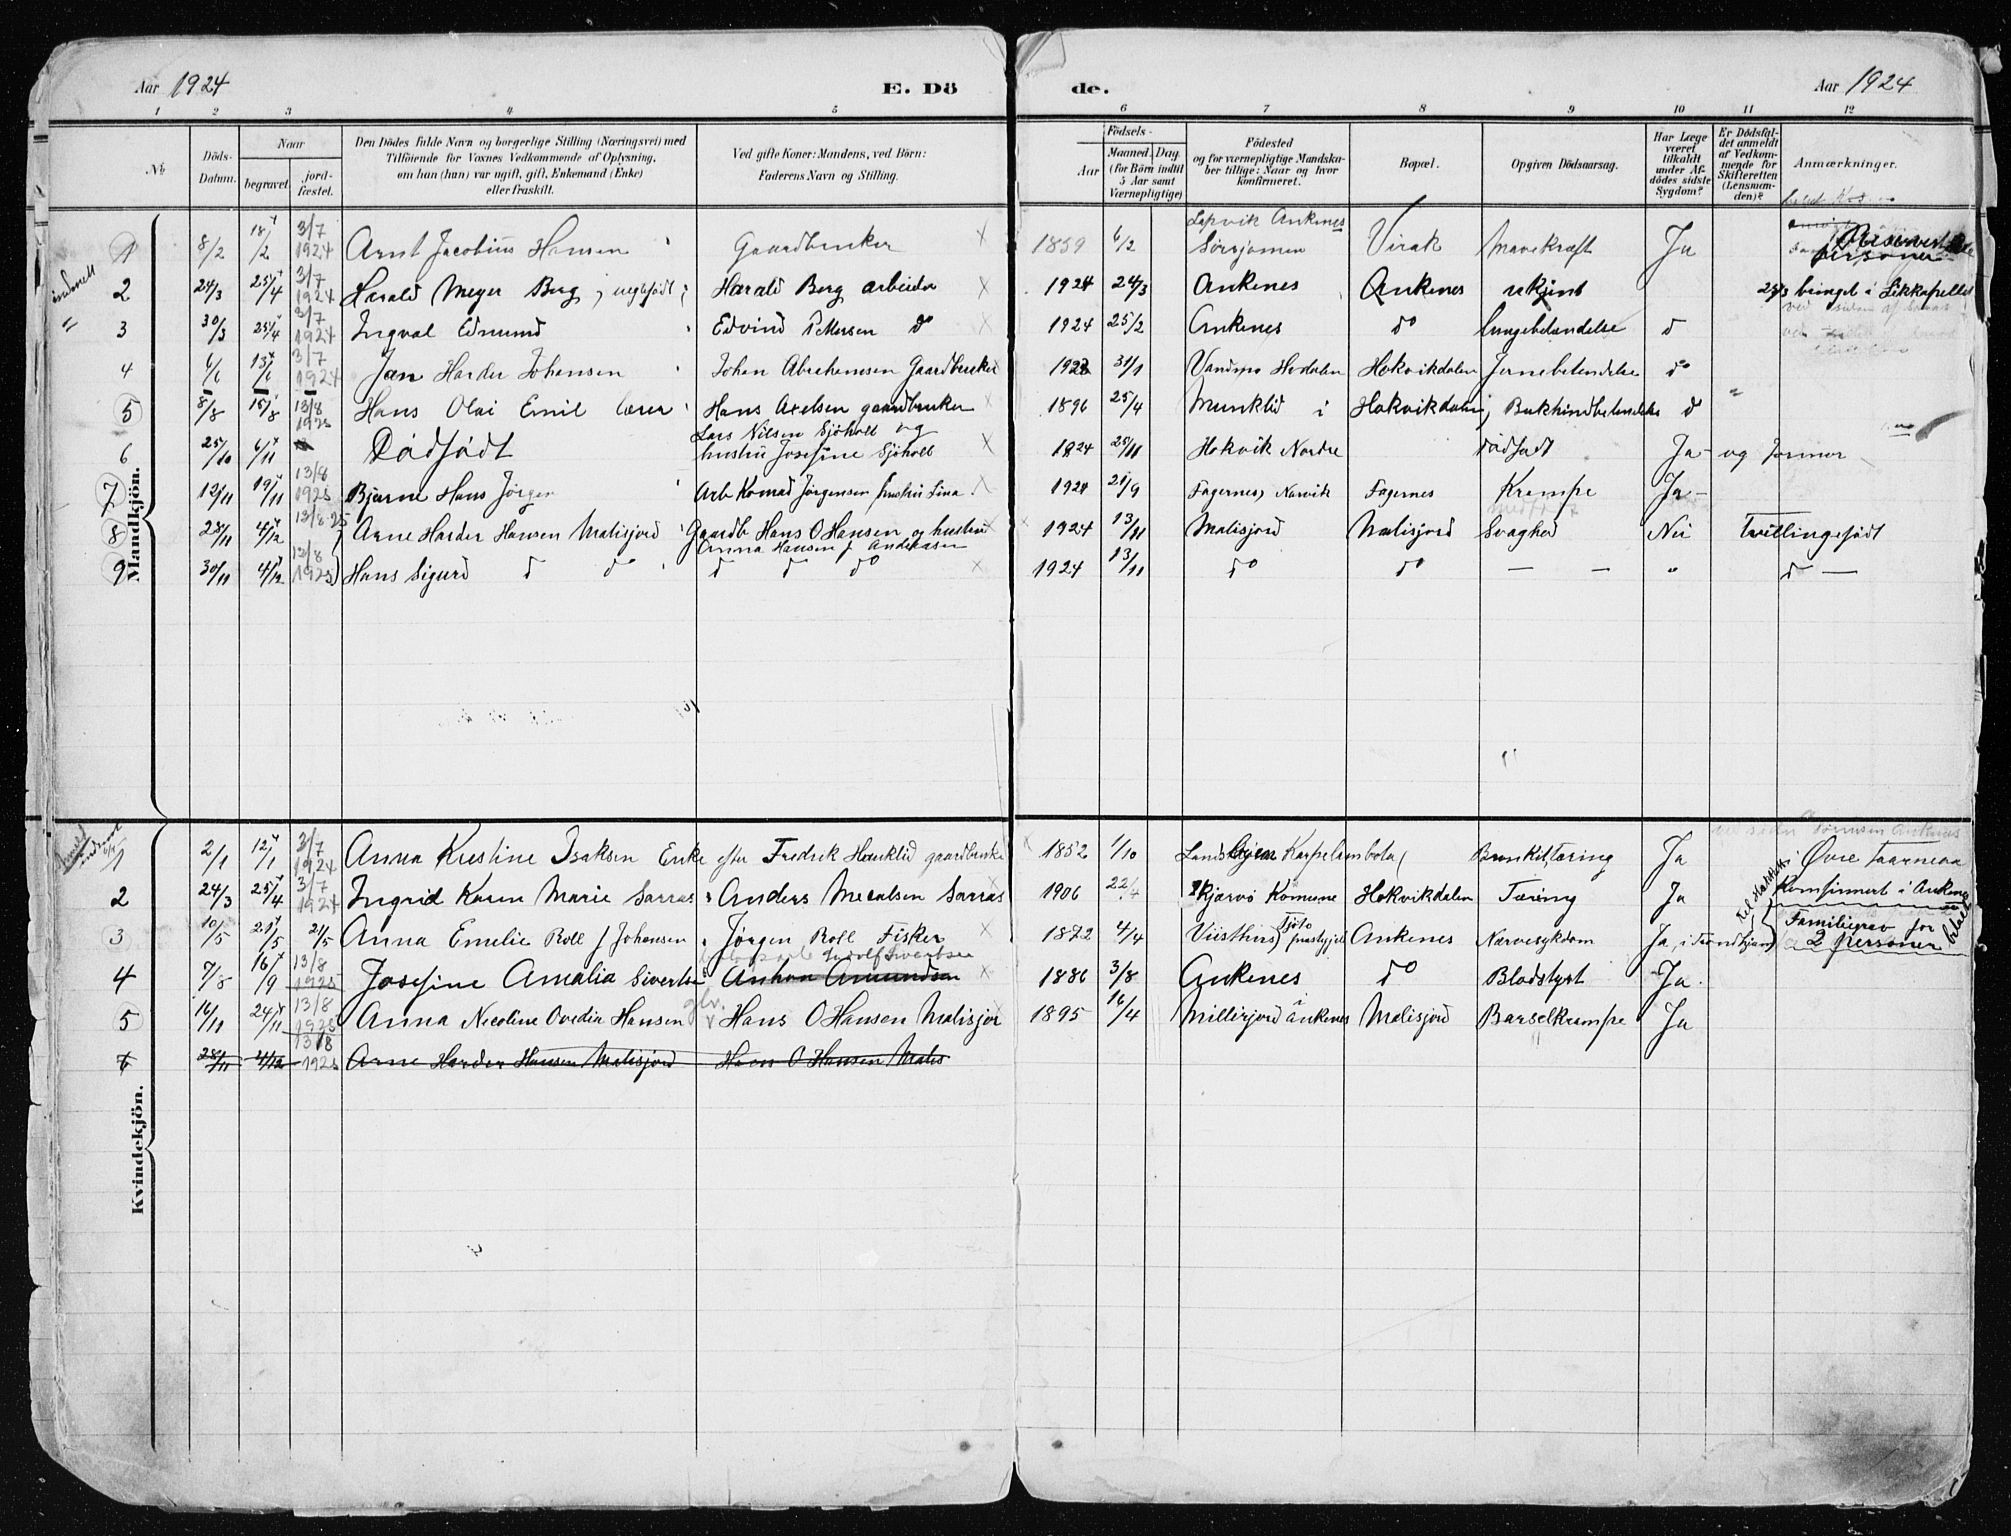 Aar 1924 E. Dö de. Aar 1924
1 2 3 4 5 6 7 8 9 10 11 12
No. Döds-Datum. Naar begravet. jordfæstet. Den Dödes fulde Navn og borgerlige Stilling (Næringsvei) med Tilföiende for Voxnes Vedkommende af Oplysning, om han (hun) var ugift, gift, Enkemand (Enke) eller fraskilt. Ved gifte Koner: Mandens, ved Börn: Faderens Navn og Stilling. Födsels- Aar Maaned. Dag. (for Börn indtil 5 Aar samt Værnepligtige) Födested og for værnepligtige Mandskaber tillige: Naar og hvor konfirmeret. Bopæl. Opgiven Dödsaarsag. Har Læge været tilkaldt under Afdödes sidste Sygdom? Er Dödsfaldet anmeldt af Vedkommende for Skifteretten (Lensmanden)? Anmærkninger.
Mandkjön.
1 8/2 18/2 3/7 1924 Arnt Jacobius Hansen Gaardbruker 1859 6/2 Lapvik Ankenes Sörsjomen Virak Mavekræft Ja Reservert personer
2 24/3 25/4 3/7 1924 Harald Meyer Berg, uegtefødt Harald Berg arbeider 1924 24/3 Ankenes Ankenes ukjent 25/3 bringet i Likkapellet
3 30/3 25/4 3/7 1924 Ingval Edmund Edvind Pettersen do 1924 25/2 Ankenes do lungebetendelse d
4 6/6 13/6 3/7 1924 Jan Harder Johansen Johan Abrahamsen Gaardbruker 1923 31/1 Hokvikdalen Jernebetendelse do
5 8/8 15/8 13/8 1925 Hans Olai Emil lærer Hans Axelsen gaardbruker 1896 25/4 Munklid i Hokvikdalen Bukhindbetendelse d "
6 25/10 6/11 Dødfødt Lars Nilsen Sjöholt og hustru Josefine Sjöholt 1824 25/11 Hokvik Nordre dødfødt Ja og Jormor
7 12/11 19/11 13/8 1925 Bjarne Hans Jörgen Arb Konrad Jörgensen hustru Lina 1924 21/9 Fagernes, Narvik Fagernes Krampe Ja
8 28/11 4/12 13/8-25 Arne Harder Hansen Malisjord Gaardb Hans O Hansen og hustru Anna Hansen f Andreasen 1924 13/11 Malisjord Malisjord Svaghed Nei Tvillingefødt
9 30/11 4/12 13/8 1925 Hans Sigurd d do d d do 1924 13/11 do do — — " d —
Kvindekjön.
1 2/1 12/1 3/7 1924 Anna Kristine Isaksen Enke efter Fredrik Hanklid gaardbruker 1852 1/10 Karpelambola Ja Øvre Taarneaa
2 24/3 25/4 3/7 1924 Ingrid Karen Marie Sarras Anders Sarras 1906 22/4 Skjærvö Komune Hokvikdalen Tæring Ja Konfirmert i Ankenes
3 10/5 21/5 21/5 Anna Emelie Roll f Johansen Jørgen Roll Fisker 1872 4/4 Tjöto Ankenes Nervesykdom Ja, i Trondhjem Familiegrav for 2 personer
4 7/8 16/9 13/8 1925 Josefine Amalia Sivertsen Anton Amundsen 1886 3/8 Ankenes do Blodstyrt Ja
5 16/11 24/11 13/8 1925 Anna Nicoline Ovedia Hansen Hans O Hansen Malisjor 1895 16/4 Millerjord i Ankenes Malisjord Barselkrampe Ja
6 28/11 4/12 13/8 1925 Arne Harder Hansen Malisjord Hans O Hansen Malis